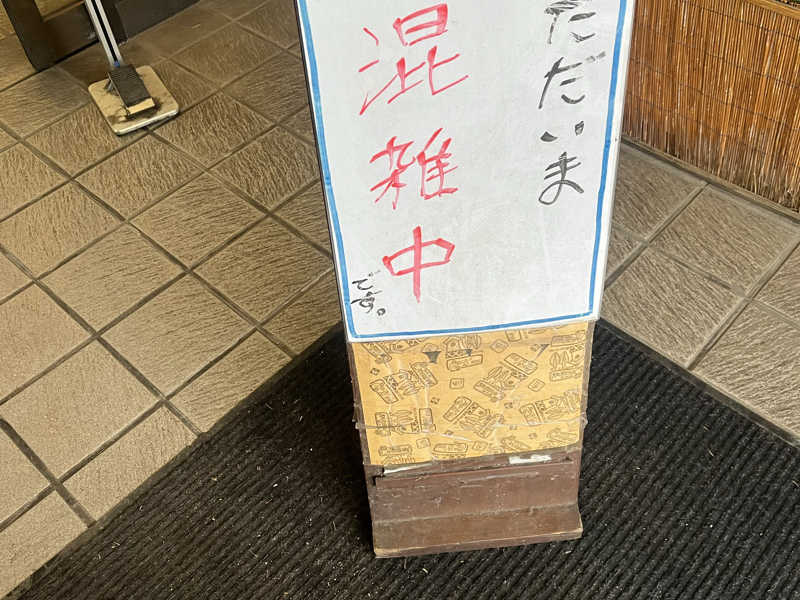 ただいま
混雑中
です。